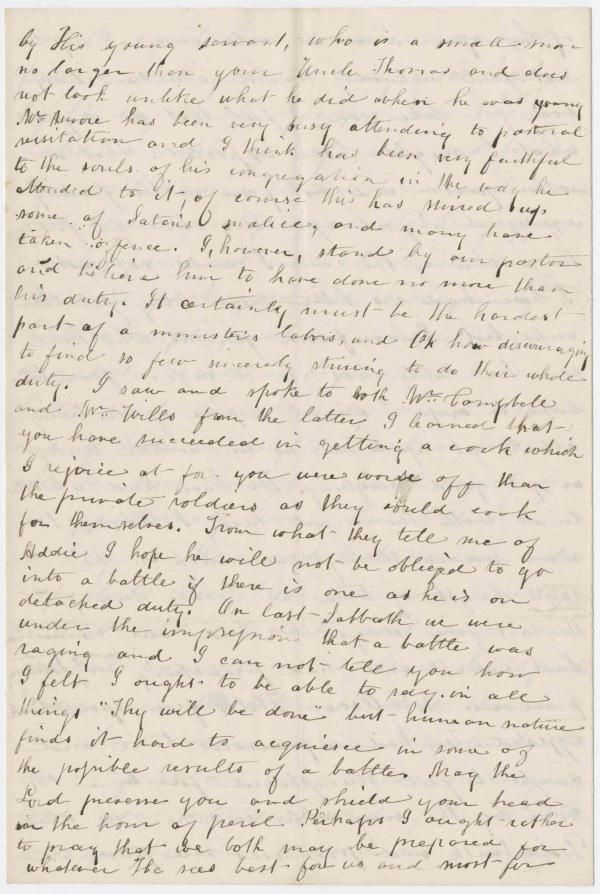 by His young servant, who is a small man
no larger than your Uncle Thomas and does
not look unlike what he did when he was young
Mr. Moore has been very busy attending to pastoral
visitation and I think has been very faithful
to the souls of his congregation in the way he
attended to it, of course this has stirred up
some of Satan's malice, and many have
taken offence. I, however, stand by our pastor
and believe him to have done no more than
his duty. It certainly must be the hardest
part of a minister's labors, and Oh how discouraging
to find so few sincerely striving to do their whole
duty. I saw and spoke to both Mr. Campbell
and Mr. Wills from the latter I learned that
you have succeeded in getting a cook which
I rejoice at for you were worse off than
the private soldiers as they could cook
for themselves. From what they tell me of
Addie I hope he will not be obliged to go
into a battle if there is one as he is on
detached duty. On last Sabbath we were
under the impression that a battle was
raging and I can not tell you how
I felt I ought to be able to say in all
things "Thy will be done" but human nature
finds it hard to acquiesce in some of
the possible results of a battle. May the
Lord preserve you and shield your head
in the hour of peril Perhaps I ought rather
to pray that we both may be prepared for
whatever He sees best for us and most for